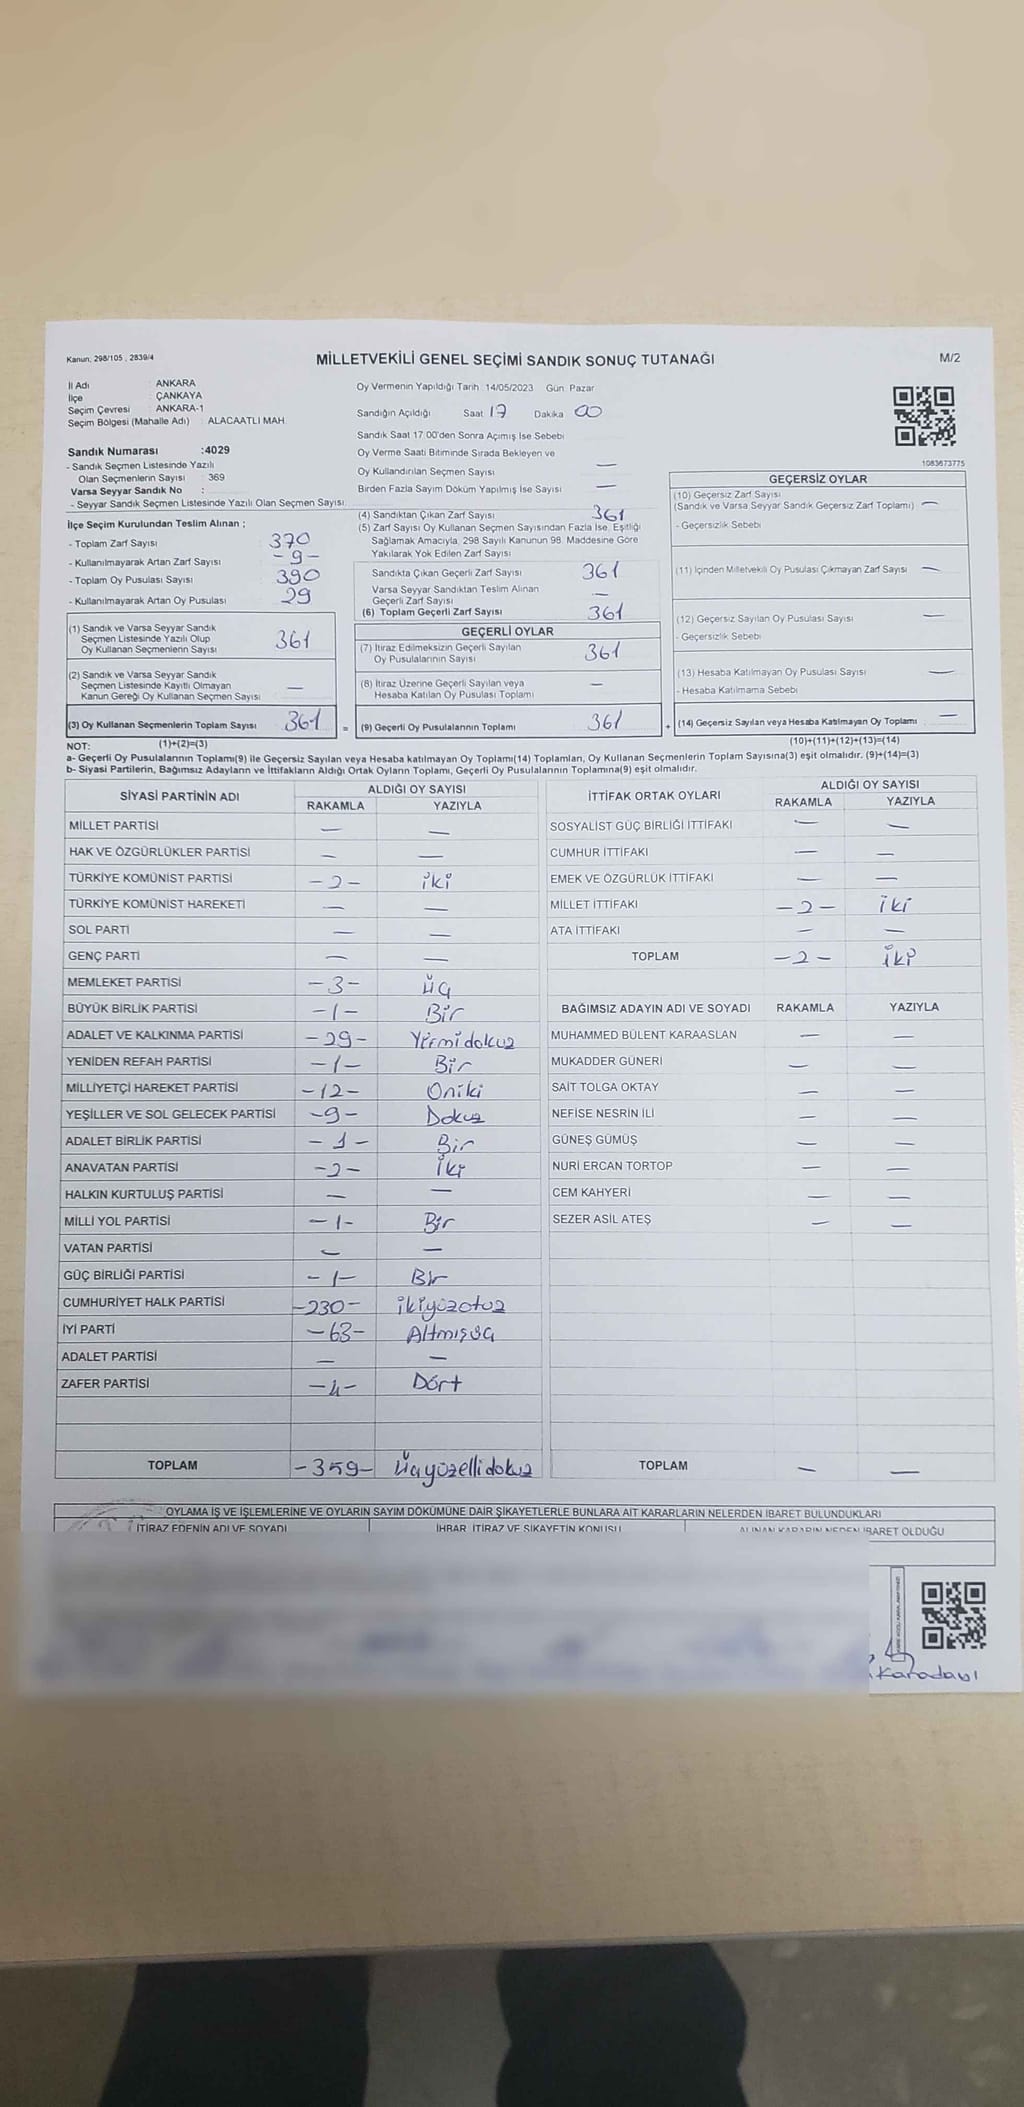 Kanun: 298/105 , 2839/4
MİLLETVEKİLİ GENEL SEÇİMİ SANDIK SONUÇ TUTANAĞI
M/2
İl Adı : ANKARA
İlçe : ÇANKAYA
Seçim Çevresi : ANKARA-1
Seçim Bölgesi (Mahalle Adı) : ALACAATLI MAH.
Oy Vermenin Yapıldığı Tarih: 14/05/2023 Gün: Pazar
Sandığın Açıldığı Saat 17 Dakika 00
Sandık Saat 17:00'den Sonra Açılmış İse Sebebi
Oy Verme Saati Bitiminde Sırada Bekleyen ve
Oy Kullandırılan Seçmen Sayısı —
Birden Fazla Sayım Döküm Yapılmış İse Sayısı —
1083673775
Sandık Numarası :4029
- Sandık Seçmen Listesinde Yazılı
Olan Seçmenlerin Sayısı : 369
Varsa Seyyar Sandık No :
- Seyyar Sandık Seçmen Listesinde Yazılı Olan Seçmen Sayısı:
İlçe Seçim Kurulundan Teslim Alınan ;
- Toplam Zarf Sayısı : 370
- Kullanılmayarak Artan Zarf Sayısı : -9-
- Toplam Oy Pusulası Sayısı : 390
- Kullanılmayarak Artan Oy Pusulası : 29
(1) Sandık ve Varsa Seyyar Sandık
Seçmen Listesinde Yazılı Olup
Oy Kullanan Seçmenlerin Sayısı 361
(2) Sandık ve Varsa Seyyar Sandık
Seçmen Listesinde Kayıtlı Olmayan
Kanun Gereği Oy Kullanan Seçmen Sayısı —
(3) Oy Kullanan Seçmenlerin Toplam Sayısı 361 =
(1)+(2)=(3)
(4) Sandıktan Çıkan Zarf Sayısı 361
(5) Zarf Sayısı Oy Kullanan Seçmen Sayısından Fazla İse, Eşitliği
Sağlamak Amacıyla, 298 Sayılı Kanunun 98. Maddesine Göre
Yakılarak Yok Edilen Zarf Sayısı
Sandıkta Çıkan Geçerli Zarf Sayısı 361
Varsa Seyyar Sandıktan Teslim Alınan
Geçerli Zarf Sayısı —
(6) Toplam Geçerli Zarf Sayısı 361
GEÇERLİ OYLAR
(7) İtiraz Edilmeksizin Geçerli Sayılan
Oy Pusulalarının Sayısı 361
(8) İtiraz Üzerine Geçerli Sayılan veya
Hesaba Katılan Oy Pusulası Toplamı —
(9) Geçerli Oy Pusulalarının Toplamı 361 +
GEÇERSİZ OYLAR
(10) Geçersiz Zarf Sayısı
(Sandık ve Varsa Seyyar Sandık Geçersiz Zarf Toplamı) —
- Geçersizlik Sebebi
(11) İçinden Milletvekili Oy Pusulası Çıkmayan Zarf Sayısı —
(12) Geçersiz Sayılan Oy Pusulası Sayısı —
- Geçersizlik Sebebi
(13) Hesaba Katılmayan Oy Pusulası Sayısı —
- Hesaba Katılmama Sebebi
(14) Geçersiz Sayılan veya Hesaba Katılmayan Oy Toplamı —
(10)+(11)+(12)+(13)=(14)
NOT:
a- Geçerli Oy Pusulalarının Toplamı(9) ile Geçersiz Sayılan veya Hesaba katılmayan Oy Toplamı(14) Toplamları, Oy Kullanan Seçmenlerin Toplam Sayısına(3) eşit olmalıdır. (9)+(14)=(3)
b- Siyasi Partilerin, Bağımsız Adayların ve İttifakların Aldığı Ortak Oyların Toplamı, Geçerli Oy Pusulalarının Toplamına(9) eşit olmalıdır.
SİYASİ PARTİNİN ADI ALDIĞI OY SAYISI
RAKAMLA YAZIYLA
MİLLET PARTİSİ — —
HAK VE ÖZGÜRLÜKLER PARTİSİ — —
TÜRKİYE KOMÜNİST PARTİSİ -2- iki
TÜRKİYE KOMÜNİST HAREKETİ — —
SOL PARTİ — —
GENÇ PARTİ — —
MEMLEKET PARTİSİ -3- üç
BÜYÜK BİRLİK PARTİSİ -1- Bir
ADALET VE KALKINMA PARTİSİ -29- Yirmidokuz
YENİDEN REFAH PARTİSİ -1- Bir
MİLLİYETÇİ HAREKET PARTİSİ -12- Oniki
YEŞİLLER VE SOL GELECEK PARTİSİ -9- Dokuz
ADALET BİRLİK PARTİSİ -1- Bir
ANAVATAN PARTİSİ -2- İki
HALKIN KURTULUŞ PARTİSİ — —
MİLLİ YOL PARTİSİ -1- Bir
VATAN PARTİSİ — —
GÜÇ BİRLİĞİ PARTİSİ -1- Bir
CUMHURİYET HALK PARTİSİ -230- ikiyüzotuz
İYİ PARTİ -63- Altmışüç
ADALET PARTİSİ — —
ZAFER PARTİSİ -4- Dört
TOPLAM -359- Üçyüzellidokuz
İTTİFAK ORTAK OYLARI ALDIĞI OY SAYISI
RAKAMLA YAZIYLA
SOSYALİST GÜÇ BİRLİĞİ İTTİFAKI — —
CUMHUR İTTİFAKI — —
EMEK VE ÖZGÜRLÜK İTTİFAKI — —
MİLLET İTTİFAKI -2- iki
ATA İTTİFAKI — —
TOPLAM -2- iki
BAĞIMSIZ ADAYIN ADI VE SOYADI RAKAMLA YAZIYLA
MUHAMMED BÜLENT KARAASLAN — —
MUKADDER GÜNERİ — —
SAİT TOLGA OKTAY — —
NEFİSE NESRİN İLİ — —
GÜNEŞ GÜMÜŞ — —
NURİ ERCAN TORTOP — —
CEM KAHYERİ — —
SEZER ASİL ATEŞ — —
TOPLAM — —
OYLAMA İŞ VE İŞLEMLERİNE VE OYLARIN SAYIM DÖKÜMÜNE DAİR ŞİKAYETLERLE BUNLARA AİT KARARLARIN NELERDEN İBARET BULUNDUKLARI
İTİRAZ EDENİN ADI VE SOYADI İHBAR, İTİRAZ VE ŞİKAYETİN KONUSU ALINAN KARARIN NEDEN İBARET OLDUĞU